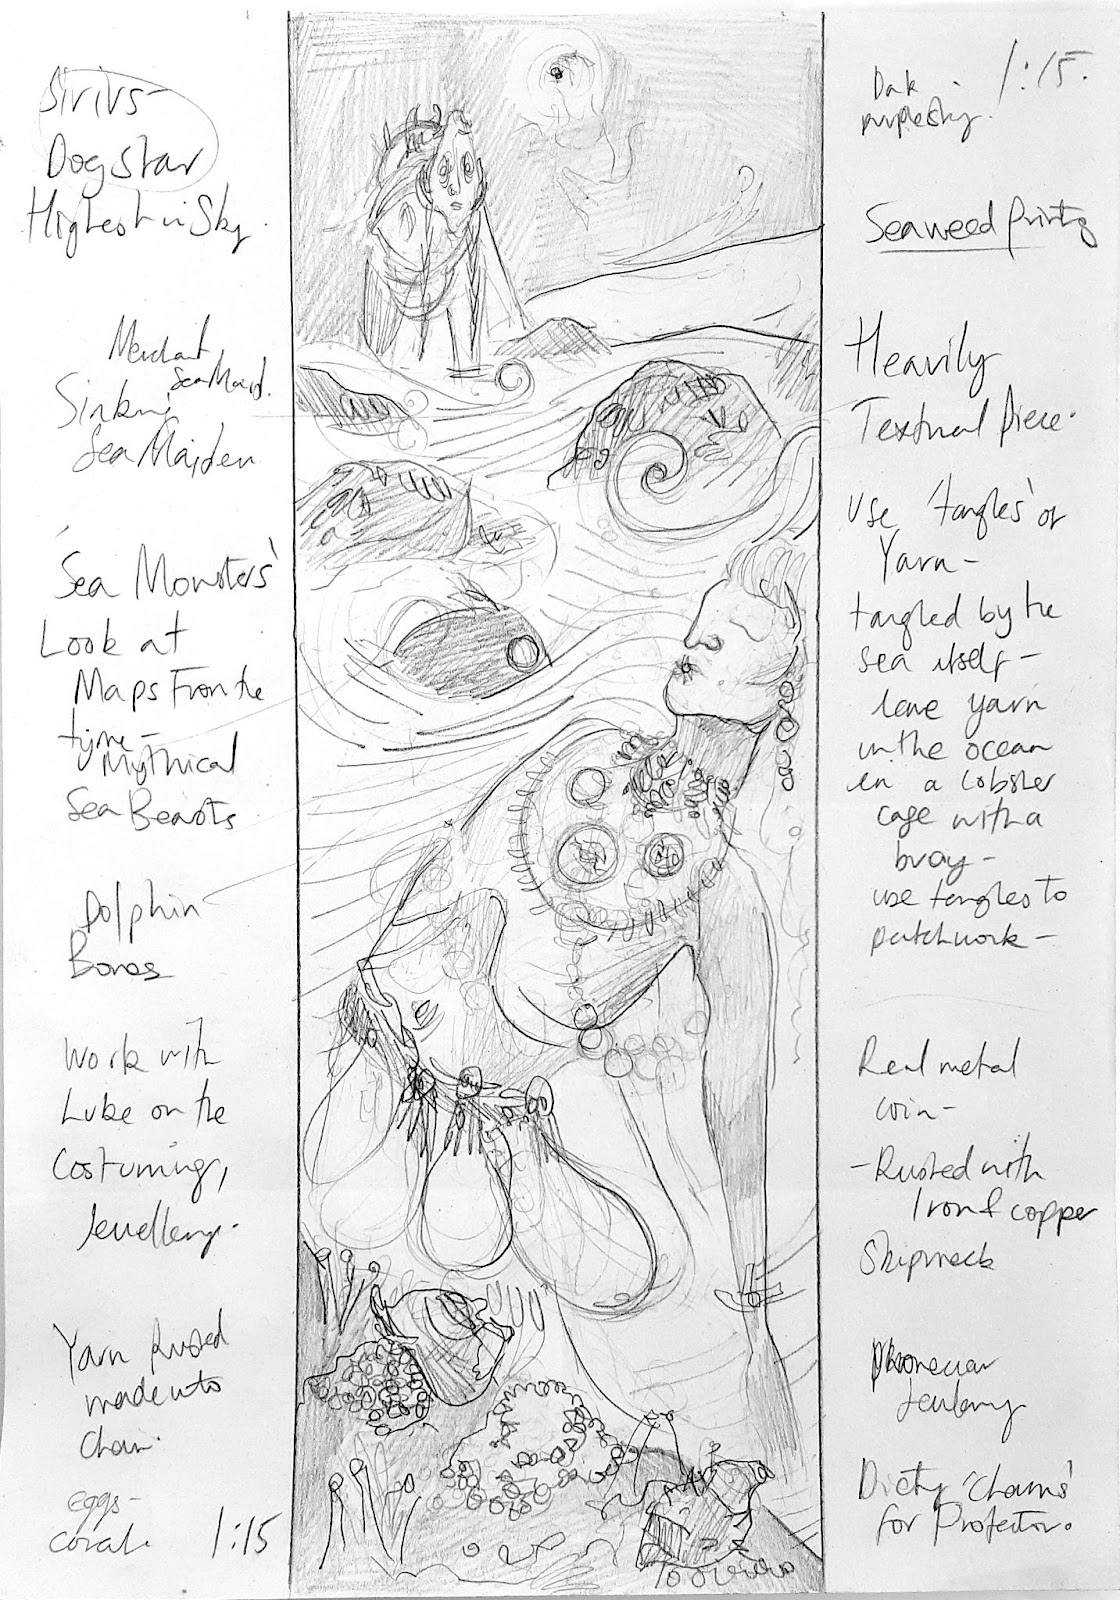 Sirius-
Dogstar
Highest in Sky.
Merchant
Sea Maid.
Sinking
Sea Maiden
'Sea Monsters'
Look at
Maps From the
time-
Mythical
Sea Beasts
Dolphin
Bones
Work with
Luke on the
Costuming,
Jewellery.
Yarn Rusted
made into
Chain.
eggs-
coral.
1:15
1:15.
Dark
purple sky.
Seaweed prints
Heavily
Textural Piece.
Use 'tangles' of
Yarn-
tangled by the
sea itself-
leave yarn
in the ocean
in a lobster
cage with a
buoy-
use tangles to
patchwork-
Real metal
coin-
-Rusted with
Iron & copper
Shipwreck
Phonecian
Jewlery
Diety 'Charms'
for Protection.